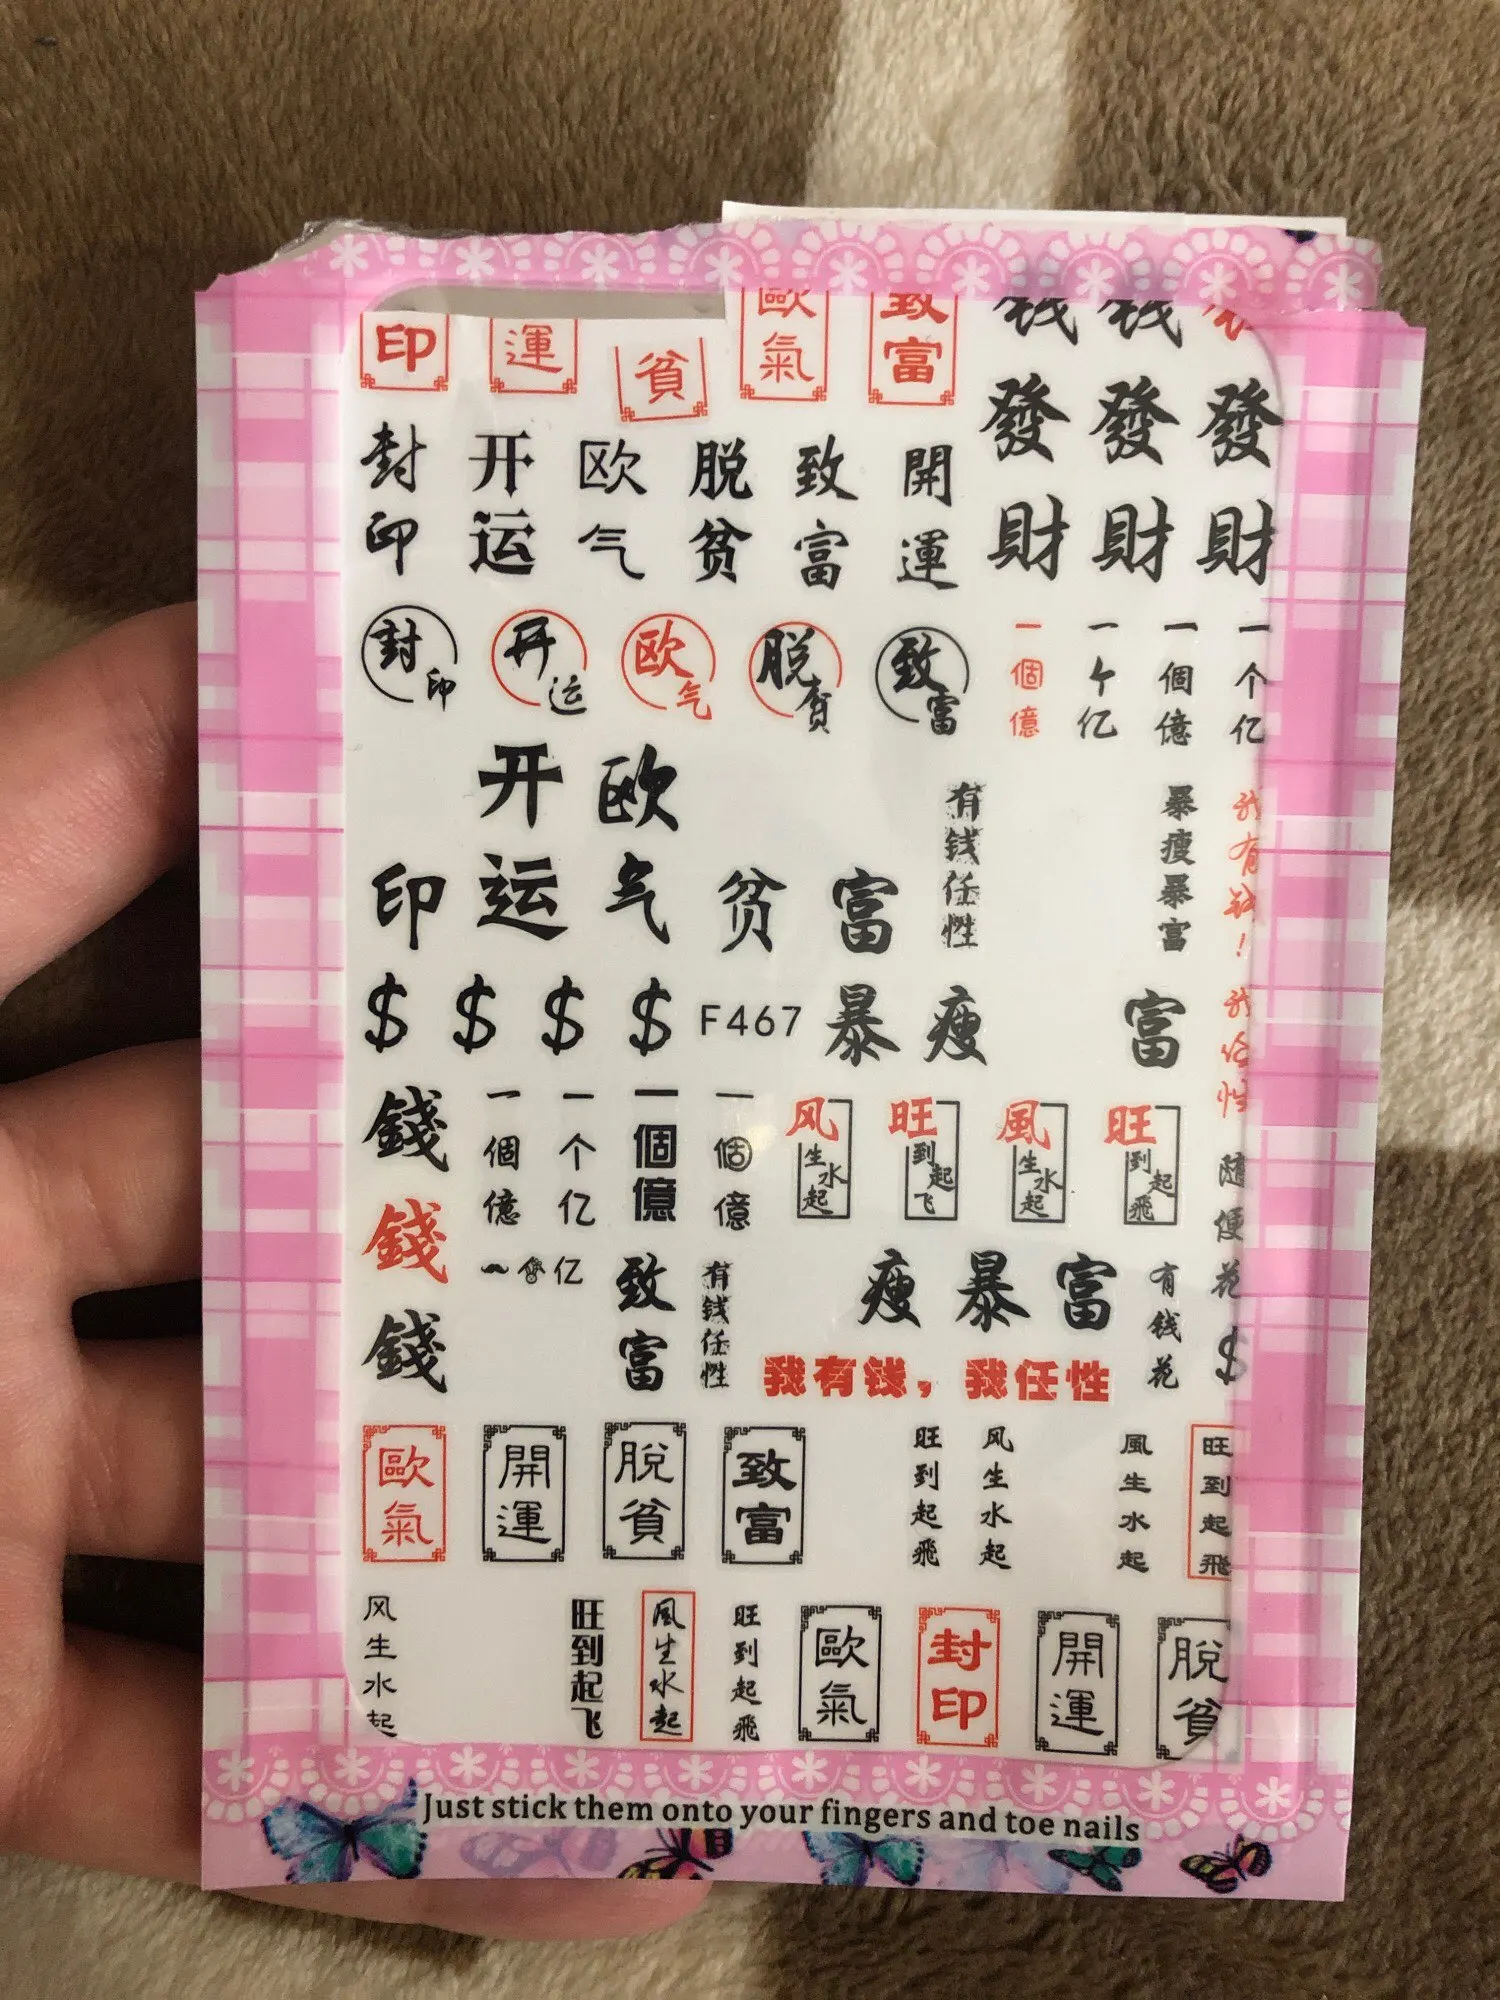 印 運 貧 歐氣 致富
封印 开运 欧气 脱贫 致富 開運
發財 發財 發財
封印 开运 欧气 脱贫 致富
一個億 一个亿 一個億 一个亿
开运 欧气
印 贫 富
有钱任性
暴瘦暴富
我有钱！我任性
$ $ $ $ F467 暴瘦 富
錢 一個億 一个亿 一個億 一個億
风生水起 旺到起飞 風生水起 旺到起飛
随便花$
錢
亿
致富
有钱任性
瘦暴富
有钱花
錢
我有钱，我任性
歐氣 開運 脫貧 致富
旺到起飛 风生水起 風生水起 旺到起飛
风生水起 旺到起飞 風生水起 旺到起飛
歐氣 封印 開運 脫貧
Just stick them onto your fingers and toe nails